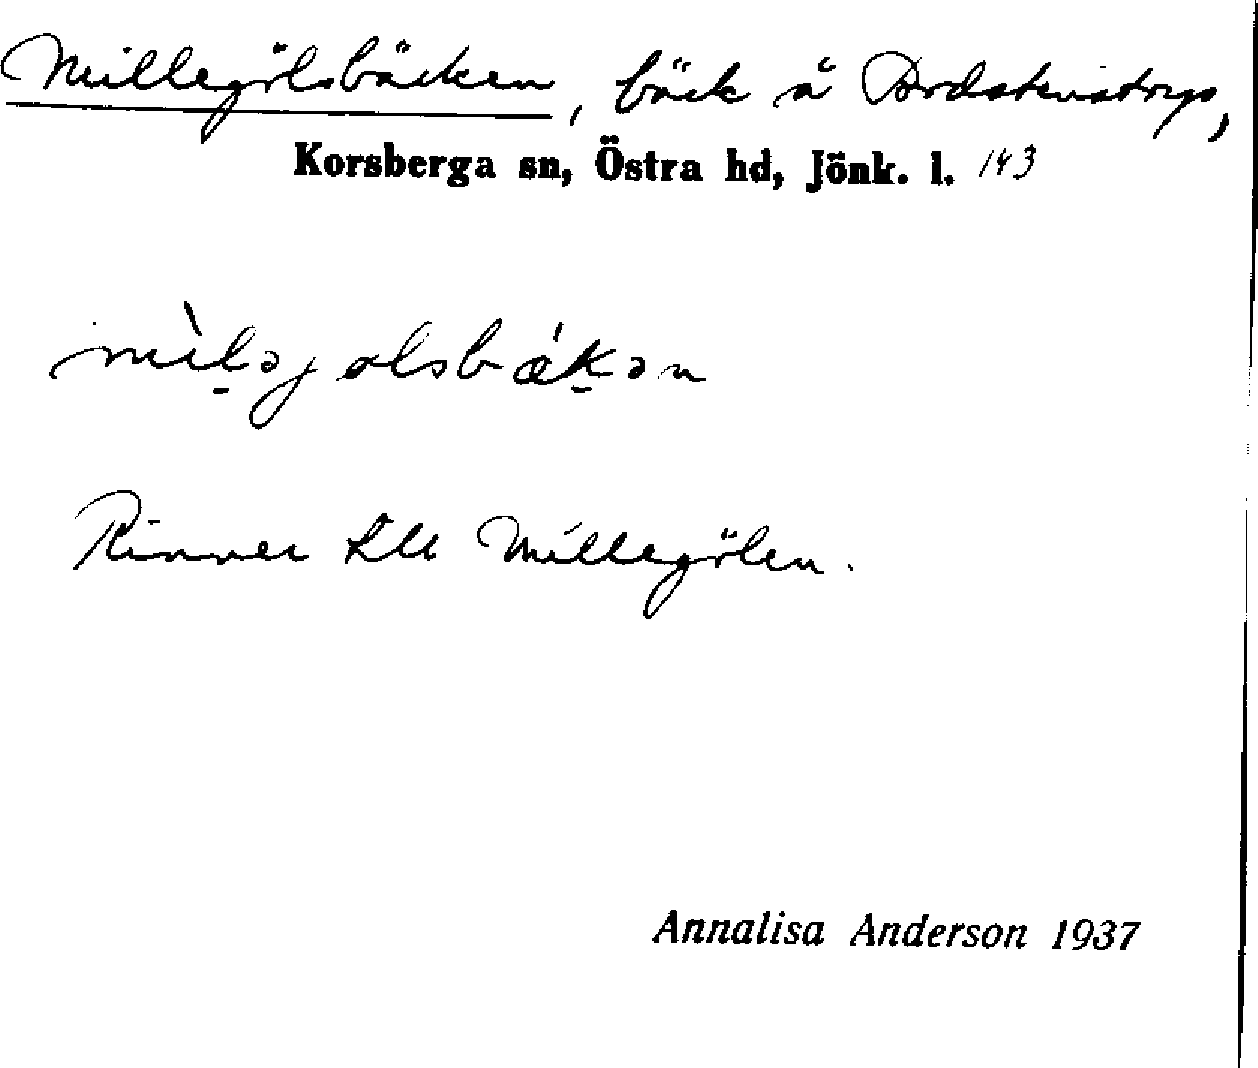 Millegölsbäcken, bäck å Bordstenstorps,
Korsberga sn, Östra hd, Jönk. l. 143
mìl̠əjəlsbák̠ən
Rinner till Millegölen.
Annalisa Anderson 1937